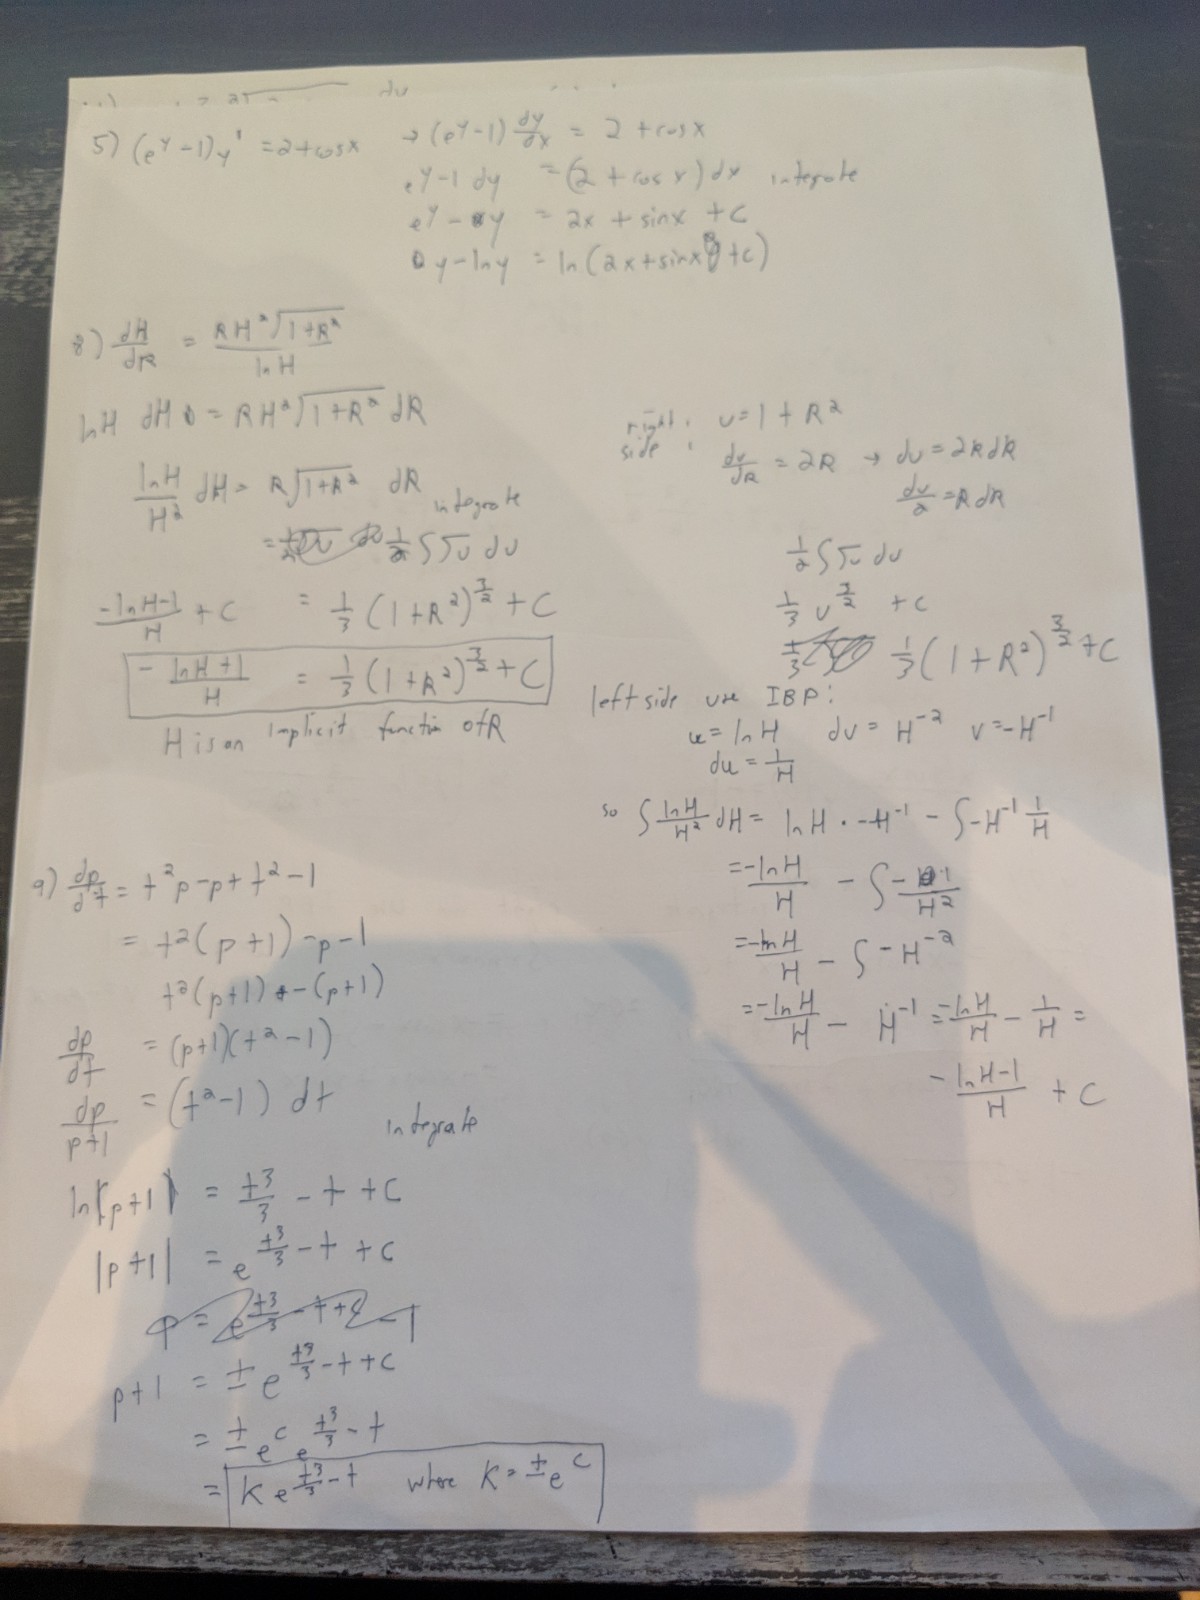 5) (e^y -1)y' = 2+cosx → (e^y -1) dy/dx = 2 + cosx
e^y -1 dy = (2 + cos x) dx integrate
e^y - y = 2x + sinx + C
y - lny = ln(2x+sinx +C)
8) dH/dR = RH²√(1+R²) / lnH
lnH dH = RH²√(1+R²) dR
lnH/H² dH = R√(1+R²) dR integrate
= 1/2 ∫√u du
-lnH-1/H + C = 1/3 (1+R²)^3/2 + C
- lnH+1/H = 1/3 (1+R²)^3/2 + C
H is an implicit function of R
right side: u = 1 + R²
du/dR = 2R → du = 2R dR
du/2 = R dR
1/2 ∫√u du
1/3 u^3/2 + C
1/3 (1+R²)^3/2 + C
left side use IBP:
u = lnH dv = H^-2 v = -H^-1
du = 1/H
so ∫ lnH/H² dH = lnH · -H^-1 - ∫ -H^-1 1/H
= -lnH/H - ∫ -1/H²
= -lnH/H - ∫ -H^-2
= -lnH/H - H^-1 = -lnH/H - 1/H =
-lnH-1/H + C
9) dp/dt = t²p - p + t² - 1
= t²(p+1) - p - 1
t²(p+1) - (p+1)
dp/dt = (p+1)(t² - 1)
dp/p+1 = (t² - 1) dt
integrate
ln|p+1| = t³/3 - t + C
|p+1| = e^t³/3 - t + C
p+1 = ± e^t³/3 - t + C
= ± e^C e^t³/3 - t
= K e^t³/3 - t where K = ± e^C